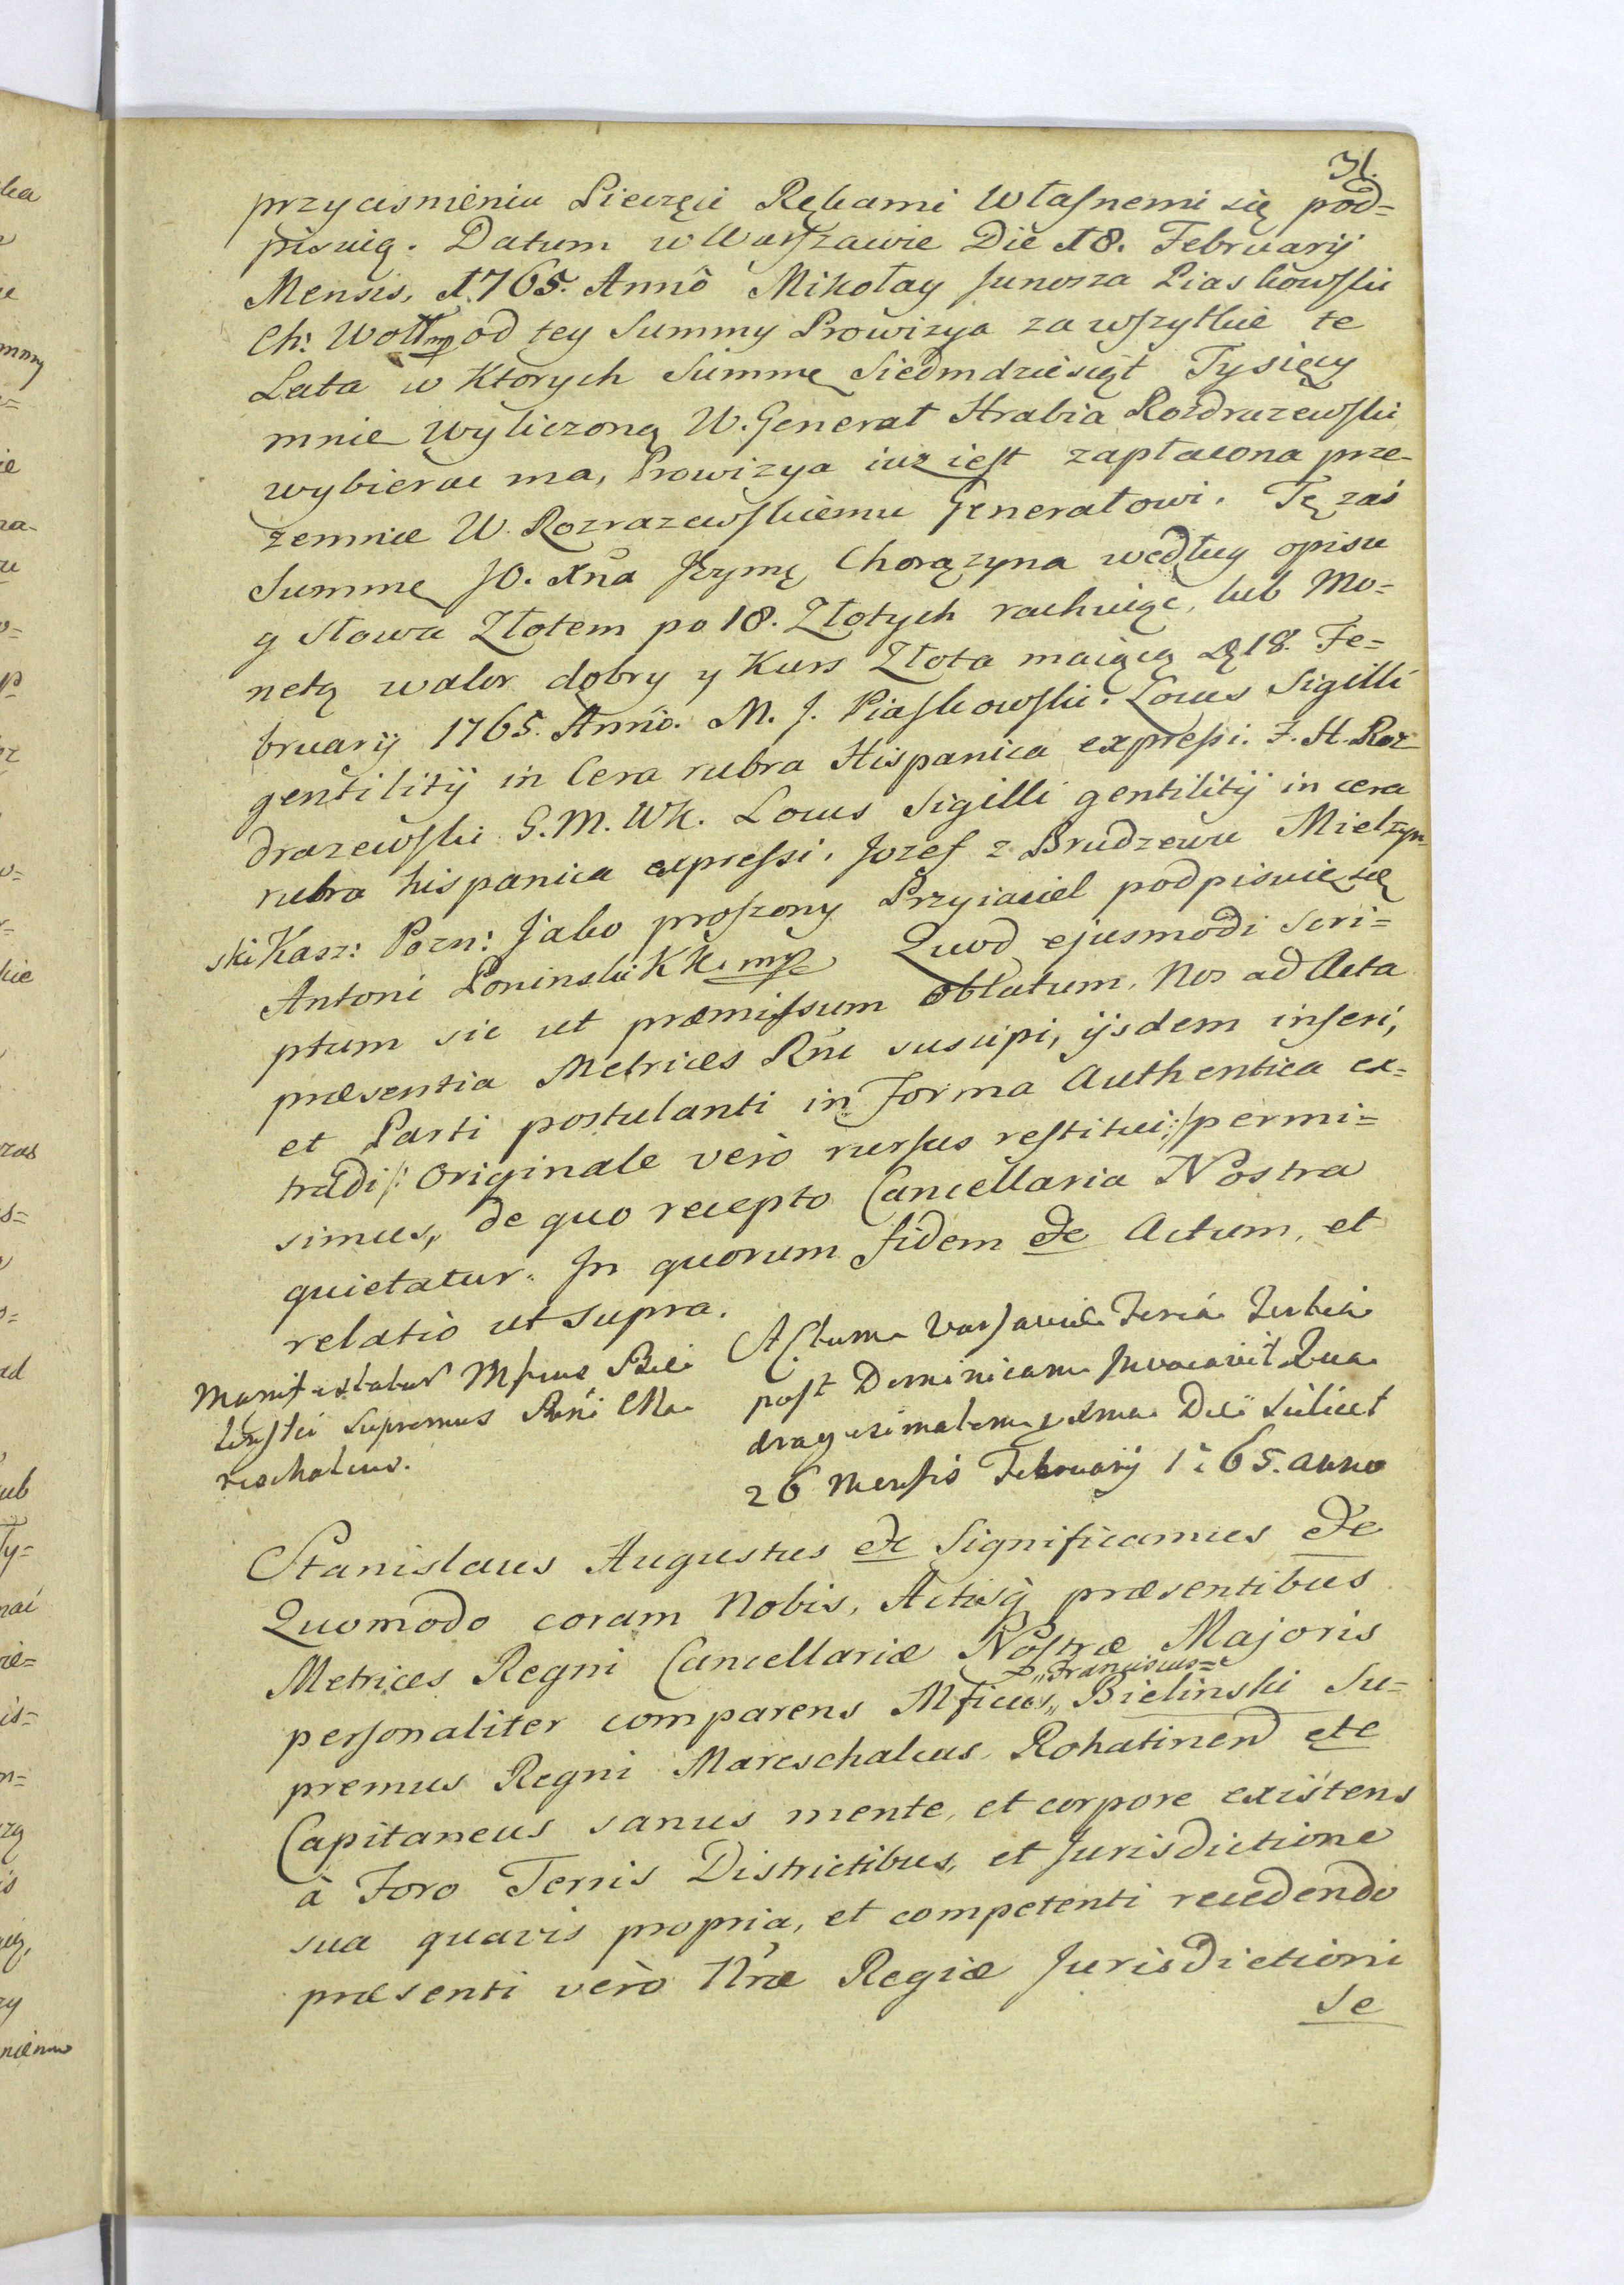 31.
przycisnieniu Pieczęci Rękami Własnemi się pod=
pisuią. Datum w Warszawie Die 18. Februarij
Mensis, 1765. Annô Mikołay Junosza Piaskowski
Ch: Woł mp od tey Summy Prowizya za wszytkie te
Lata w Ktorych Summę Siedmdziesiąt Tysięcy
mnie wyliczoną W. Generał Hrabia Rozdrazewski
wybierac ma, Prowizya iuz iest zapłacona prze-
zemnie W. Rozrazewskiemu Generałowi. Tę zaś
Summę JO. Xna Jeymę Chorązyna według opisu
y słowa Złotem po 18. Złotych rachuiąc, lub Mo=
netą walor dobry y Kurs Złota maiącą D. 18. Fe=
bruarij 1765. Anno. M. J. Piaskowski. Locus Sigilli
gentilitij in Cera rubra Hispanica expressi. F. H. Roz
drazewski G. M. WK. Locus Sigilli gentilitij in cera
rubra hispanica expressi. Jozef z Brudzewa Mielzyn
ski Kasz: Pozn: Jako proszony Przyiaciel podpisuie się
Antoni Poninski K K. mp Quod ejusmodi scri=
ptum sic ut præmissum oblatum, Nos ad Acta
præsentia Metrices Rni suscipi, ijsdem inseri,
et Parti postulanti in Forma Authentica ex=
tradi /: Originale verò rursus restitui :/ permi=
simus, de quo recepto Cancellaria Nostra
quietatur. In quorum fidem etc Actum, et
relatio ut supra.
Manifestatur Mficus Bie
linski Supremus Rni Ma
reschalcus.
Actum Varsaviæ Feria Tertia
post Dominicam Invocavit Qua
dragesimalem pxma Die scilicet
26 Mensis Februarij 1765. anno
Stanislaus Augustus etc Significamus etc
Quomodo coram Nobis, Actisq præsentibus
Metrices Regni Cancellariæ Nostræ Majoris
„Franciscus=
personaliter comparens Mficus „ Bielinski Su=
premus Regni Mareschalcus, Rohatinen etc
Capitaneus sanus mente, et corpore existens
à Foro Terris Districtibus, et Jurisdictione
sua quavis propria, et competenti recedendo
præsenti verò Nræ Regiæ Jurisdictioni
se